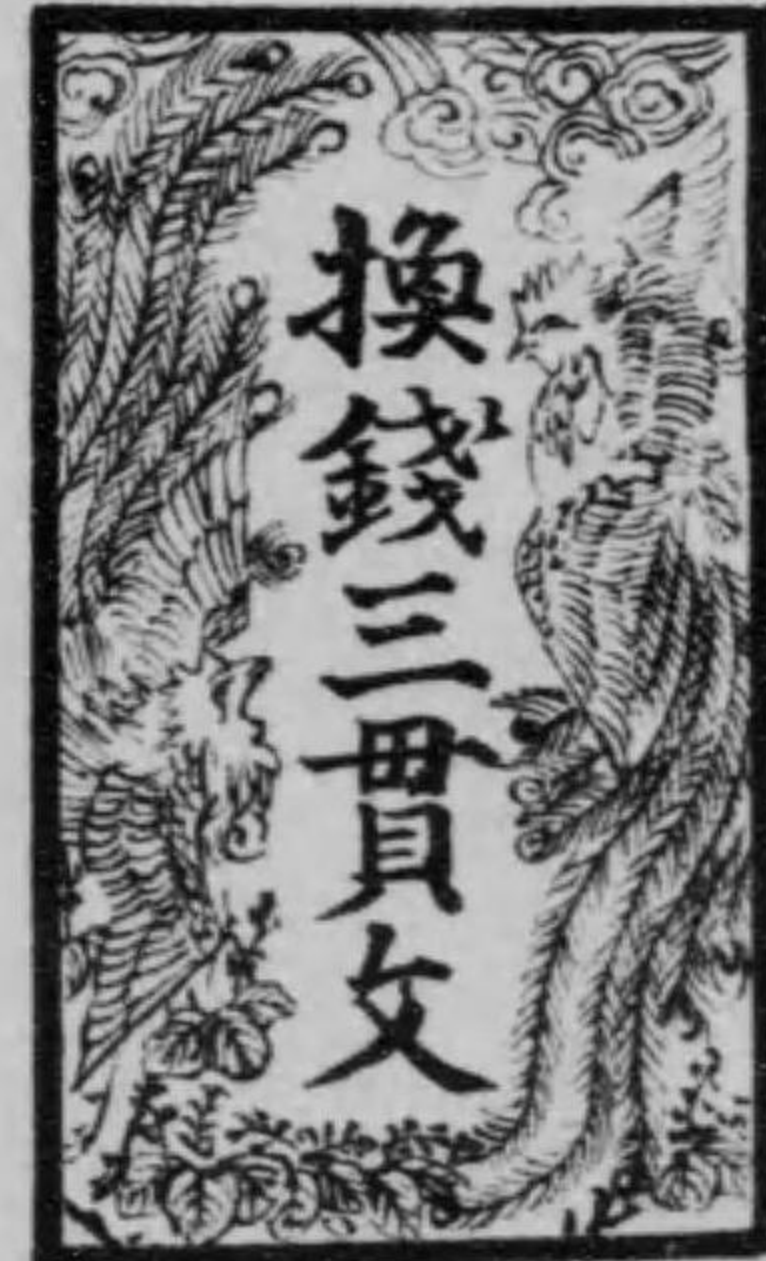 換錢三貫文